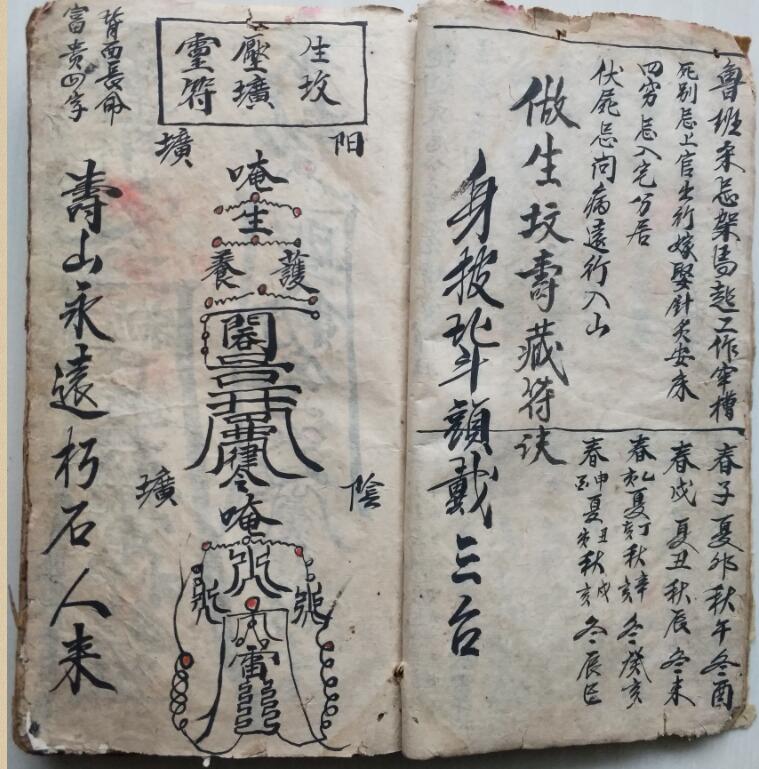 魯班杀忌架馬起工作牢槽
死别忌上官出行嫁娶針灸安床
四穷忌入宅分居
伏屍忌问病遠行入山
春子夏卯秋午冬酉
春戌夏丑秋辰冬未
春乙亥夏丁亥秋辛亥冬癸亥
春申酉夏丑未秋戌亥冬辰巳
做生坟壽藏符诀
身披北斗頭戴三台
生坟
壓壙
靈符
阳壙
唵
生
養護
令
唵
雷
陰壙
壽山永遠朽石人来
背面長命
富贵四字